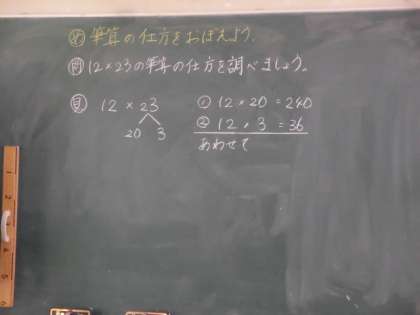 め 筆算の仕方をおぼえよう。
問 12×23の筆算の仕方を調べましょう。
見 12 × 23
20 3
① 12 × 20 = 240
② 12 × 3 = 36
あわせて